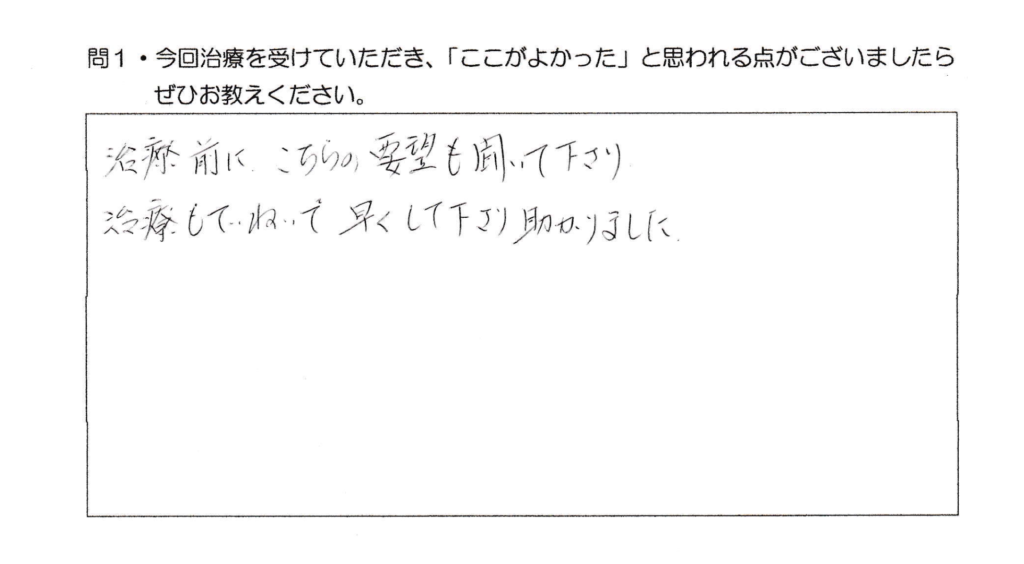 問1・今回治療を受けていただき、「ここがよかった」と思われる点がございましたら
ぜひお教えください。
治療前に、こちらの要望も聞いて下さり
治療もていねいで 早くして下さり 助かりました。